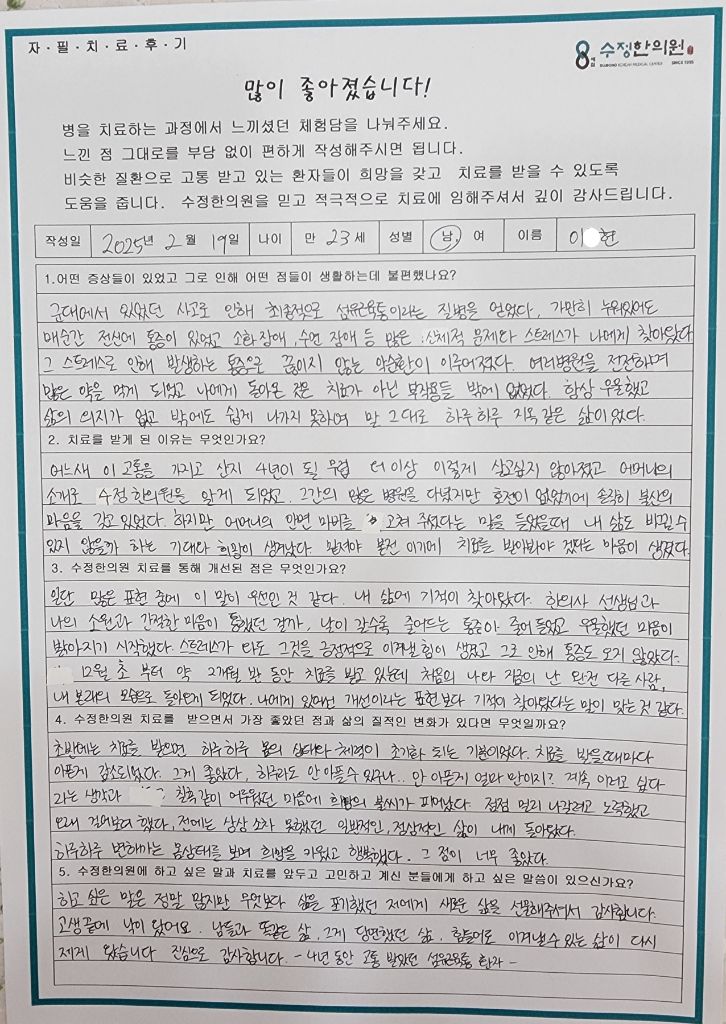 자·필·치·료·후·기
8체질 수정한의원
SUJEONG KOREAN MEDICAL CENTER SINCE 1995
많이 좋아졌습니다!
병을 치료하는 과정에서 느끼셨던 체험담을 나눠주세요.
느낀 점 그대로를 부담 없이 편하게 작성해주시면 됩니다.
비슷한 질환으로 고통 받고 있는 환자들이 희망을 갖고 치료를 받을 수 있도록
도움을 줍니다. 수정한의원을 믿고 적극적으로 치료에 임해주셔서 깊이 감사드립니다.
작성일 2025년 2월 19일 나이 만 23세 성별 남, 여 이름 이 현
1.어떤 증상들이 있었고 그로 인해 어떤 점들이 생활하는데 불편했나요?
군대에서 있었던 사고로 인해 최종적으로 섬유근육통이라는 질병을 얻었다. 가만히 누워있어도
매순간 전신에 통증이 있었고 소화장애, 수면 장애 등 많은 신체적 문제와 스트레스가 나에게 찾아왔다
그 스트레스로 인해 발생하는 통증으로 끊이지 않는 악순환이 이루어졌다. 여러병원을 전전하며
많은 약을 먹게 되었고 나에게 돌아온 것은 치료가 아닌 부작용들 밖에 없었다. 항상 우울했고
삶의 의지가 없고 밖에도 쉽게 나가지 못하며 말 그대로 하루하루 지옥 같은 삶이었다.
2. 치료를 받게 된 이유는 무엇인가요?
어느새 이 고통을 가지고 산지 4년이 될 무렵 더 이상 이렇게 살고싶지 않아졌고 어머니의
소개로 수정한의원을 알게 되었고. 그간의 많은 병원을 다녔지만 호전이 없었기에 솔직히 불신의
마음을 갖고 있었다. 하지만 어머니의 안면 마비를 고쳐 주셨다는 말을 들었을때 내 삶도 바뀔수
있지 않을까 하는 기대와 희망이 생겨났다. 밑져야 본전 이기에 치료를 받아봐야 겠다는 마음이 생겼다.
3. 수정한의원 치료를 통해 개선된 점은 무엇인가요?
일단 많은 표현 중에 이 말이 우선인 것 같다. 내 삶에 기적이 찾아왔다. 한의사 선생님과
나의 소원과 간절한 마음이 통했던 걸까, 날이 갈수록 줄어드는 통증이 줄어들었고 우울했던 마음이
밝아지기 시작했다. 스트레스가 와도 그것을 긍정적으로 이겨낼 힘이 생겼고 그로 인해 통증도 오지 않았다.
12월 초 부터 약 2개월 반 동안 치료를 받고 있는데 처음의 나와 지금의 난 완전 다른 사람,
내 본래의 모습으로 돌아오게 되었다. 나에게 있어선 개선이라는 표현보다 기적이 찾아왔다는 말이 맞는 것 같다.
4. 수정한의원 치료를 받으면서 가장 좋았던 점과 삶의 질적인 변화가 있다면 무엇일까요?
초반에는 치료를 받으면 하루하루 몸의 상태와 체력이 초기화 되는 기분이었다. 치료를 받을때마다
아픈게 감소되었다. 그게 좋았다, 하루라도 안 아플수 있구나.. 안 아픈게 얼마 만이지? 계속 이러고 싶다
라는 생각과 칠흑같이 어두웠던 마음에 희망의 불씨가 피어났다. 점점 멀리 나가려고 노력했고
오래 걸어보려 했다, 전에는 상상 조차 못했던 일반적인, 정상적인 삶이 내게 돌아왔다.
하루하루 변화하는 몸상태를 보며 희망을 키웠고 행복했다. 그 점이 너무 좋았다.
5. 수정한의원에 하고 싶은 말과 치료를 앞두고 고민하고 계신 분들에게 하고 싶은 말씀이 있으신가요?
하고 싶은 말은 정말 많지만 무엇보다 삶을 포기했던 저에게 새로운 삶을 선물해주셔서 감사합니다.
고생끝에 낙이 왔어요. 남들과 똑같은 삶, 그게 당연했던 삶, 힘들어도 이겨낼수 있는 삶이 다시
제게 왔습니다 진심으로 감사합니다. - 4년 동안 고통 받았던 섬유근육통 환자 -